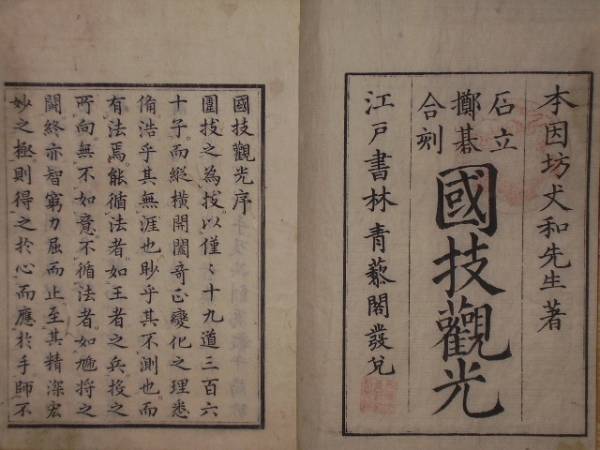 本因坊丈和先生著
石立
擲碁
合刻
國技觀光
江戸書林青藜閣發兌
國技觀光序
圍技之為技以僅〻十九道三百六
十子而縱横開闔奇正變化之理悉
備浩乎其無涯也眇乎其不測也而
有法焉能循法者如王者之兵投之
所向無不如意不循法者如尩將之
鬪終亦智窮力屈而止至其精深宏
妙之極則得之於心而應於手師不